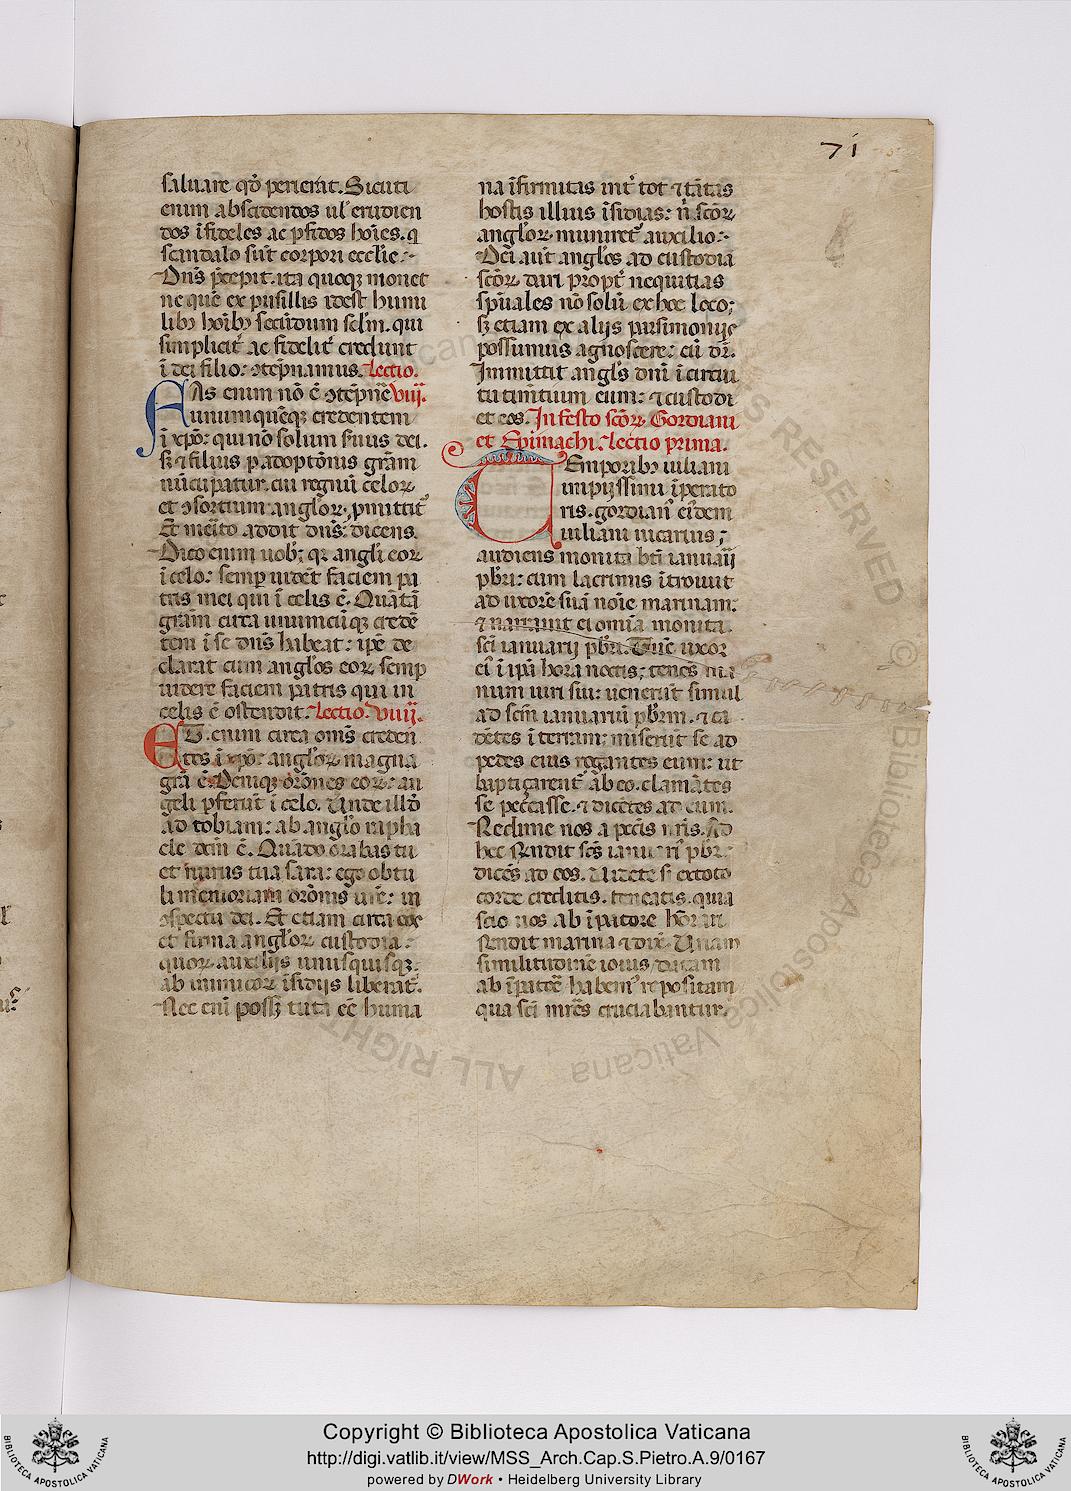 71
saluare qd̄ perierat. Sicuti
enim abscidendos ul' erudien
dos īfideles ac pfidos hoīes. q
scandalo sūt corpori eccl'ie:
Dn̄s p̄cepit. ita quoqꝫ monet
ne quē ex pusillis idest humi
libꝫ hoībꝫ secūdum sclm̄. qui
simplicit̄ ac fidelit̄ credunt
ī dei filio: ꝯtēpnamus. Lectio.
FAs enim nō ē ꝯtēpnē viij.
unumquēqꝫ credentem
ī xpō: qui nō solum seruus dei.
sꝫ ⁊ filius p adoptōnis grām
nūcupatur. cui regnū celoꝝ
et ꝯsortium angloꝝ, pmittit̄
Et mēito addit dn̄s: dicens.
Dico enim uob̄; qꝛ angli eoꝝ
ī celo: semp uidēt faciem pa
tris mei qui ī celis ē. Quātā
grām circa unumcūqꝫ credē
tem ī se dn̄s habeat: ipē de
clarat cum anglos eoꝝ semp
uidere faciem patris qui in
celis ē ostendit. Lectio. viiij.
ET. enim circa om̄s creden
tes ī xpō: angloꝝ magna
grā ē. Deniqꝫ orōnes eoꝝ: an
geli pferūt ī celo. Unde illd̄
ad tobiam: ab anglo rapha
ele dcm̄ ē. Quādo orabas tu
et nurus tua sara: ego obtu
li memoriam orōnis ur̄e: in
ꝯspectu dei. Et etiam circa eos
et firma angloꝝ custodia:
quoꝝ auxilijs unusquisqꝫ:
ab inimicoꝝ īsidijs liberat̄.
Nec enī possꝫ tuta eē huma
na īfirmitas int̄ tot ⁊ tātas
hostis illius īsidias: n̄ scōꝝ
angloꝝ muniret̄ auxilio:
Dei aut̄ anglos ad custodiā
scōꝝ dari propt̄ nequitias
spūales nō solū ex hoc loco;
sꝫ etiam ex alijs
possumus agnoscere: cū dr̄.
Inmittit angl's dn̄i ī circui
tu timētium eum: ⁊ custodi
et eos. In festo scōꝝ Gordiani
et Epimachi. Lectio prima.
TEmporibꝫ iuliani
impijssimi īperato
ris. gordianī eiꝰdem
iuliani uicarius;
audiens monita btī ianuaīj
pbrī: cum lacrimis ītrouit
ad uxorē suā noīe marinam:
⁊ narrauit ei omīa monita.
scī ianuarij pbrī. Tūc uxor
eiꝰ ī ipā hora noctis; tenēs ma
num uiri sui: uenerūt simul
ad scm̄ ianuariū pbrm̄. ⁊ ca
dētes ī terram: miserūt se ad
pedes eius rogantes eum: ut
baptiçarent̄ ab eo. clamātes
se peccasse. ⁊ dicētes ad eum.
Redime nos a pccīs nr̄is. Ad
hec rn̄dit scs̄ ianuariꝰ pbr̄:
dicēs ad eos. Uidete si ex toto
corde creditis. teneatis. quia
scio nos ab īpatore
rn̄dit marina ⁊ dix̄. Unam
similitudinē iouis
ab īpatōe habemꝰ repositam
qua scī mr̄es cruciabantur.
Copyright © Biblioteca Apostolica Vaticana
http://digi.vatlib.it/view/MSS_Arch.Cap.S.Pietro.A.9/0167
powered by DWork • Heidelberg University Library